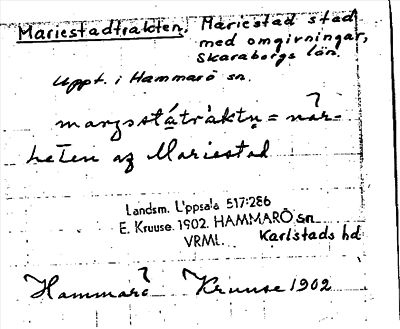 Mariestadtrakten. Mariestad stad
med omgivningar,
Skaraborgs län.
Uppt. i Hammarö sn.
= när-
heten av Mariestad
Landsm. Uppsala 517:286
E. Kruuse. 1902. HAMMARÖ sn
VRML. Karlstads hd
Hammarö Kruuse 1902